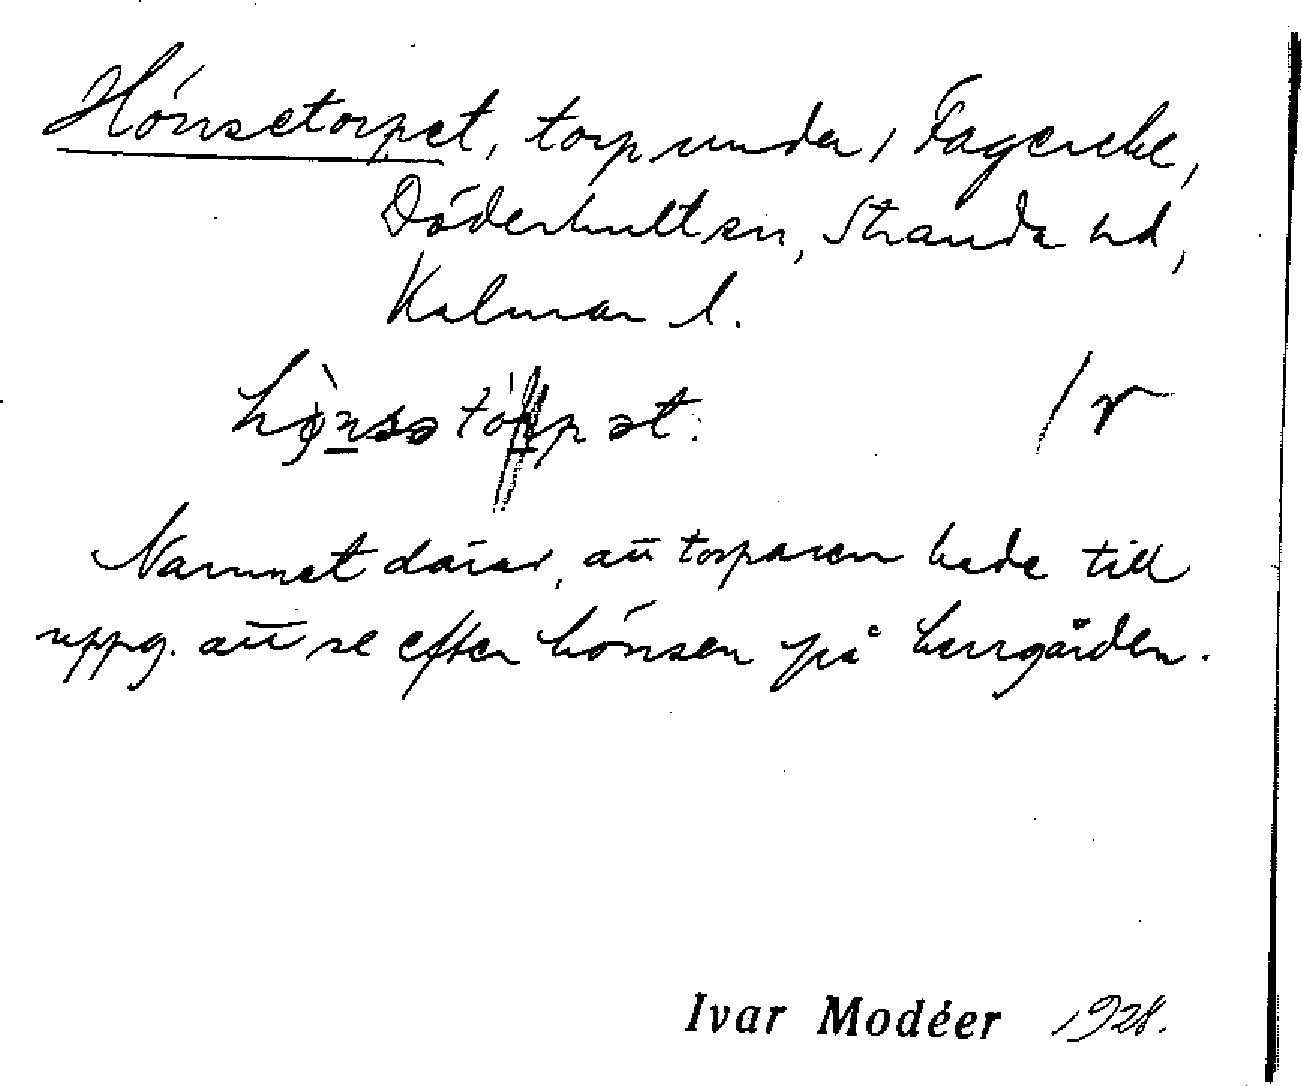 Hönsetorpet, torp under Fagereke,
Döderhult sn, Stranda hd,
Kalmar l.
/r
Namnet därav, att torparen hade till
uppg. att se efter hönsen på herrgården.
Ivar Modéer 1928.